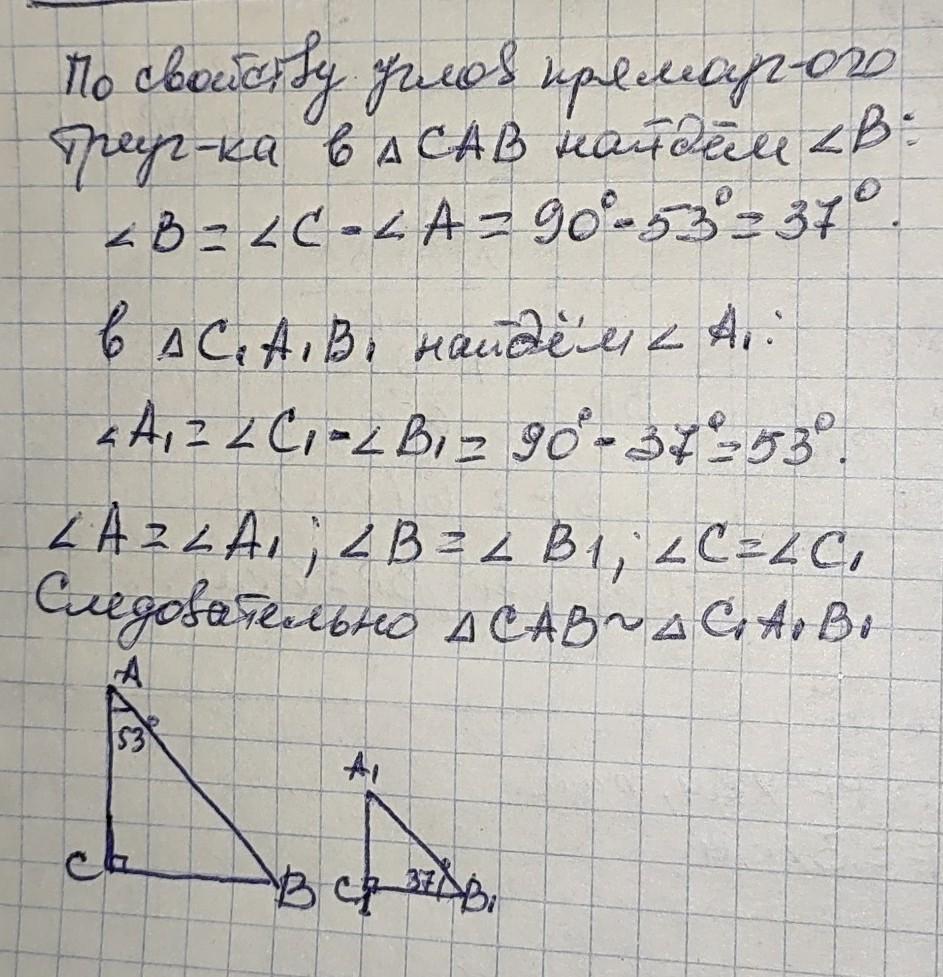 По свойству углов прямоуг-ого
треуг-ка в △CAB найдём ∠B:
∠B = ∠C - ∠A = 90° - 53° = 37°.
в △C₁A₁B₁ найдём ∠A₁:
∠A₁ = ∠C₁ - ∠B₁ = 90° - 37° = 53°.
∠A = ∠A₁; ∠B = ∠B₁; ∠C = ∠C₁
Следовательно △CAB ~ △C₁A₁B₁
A
53°
A₁
C
B
C₁
37°
B₁